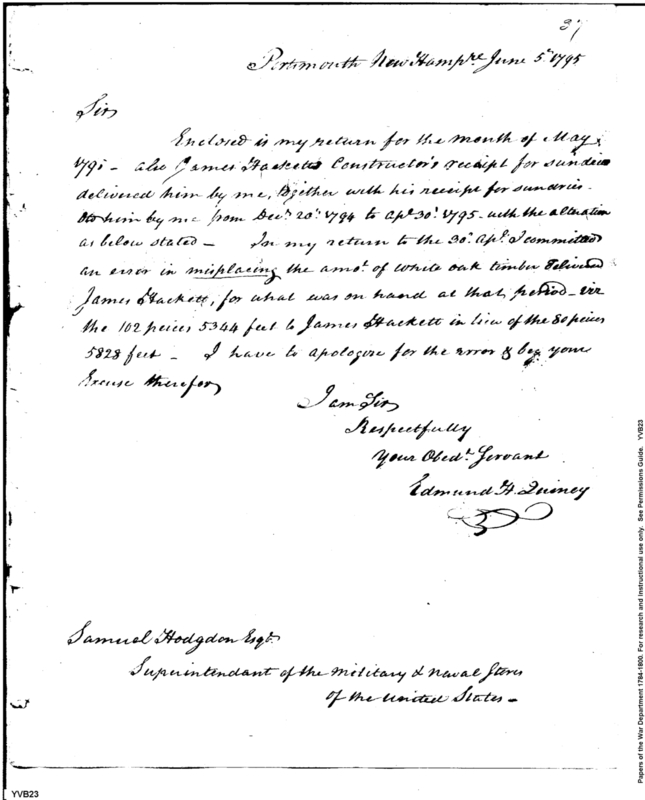 37
Portsmouth New Hampre June 5th 1795
Sir
Enclosed is my return for the month of May
1795 - also James Hacketts Constructor's receipt for sundries
delivered him by me, together with his receipt for sundries
him by me from Decr 20th 1794 to apl 30th 1795 - with the alteration
as below stated - In my return to the 30th apl I committed
an error in misplacing the amot of white oak timber delivered
James Hackett, for what was on hand at that period - viz
the 102 peices 5344 feet to James Hackett in lieu of the 80 pieces
5828 feet - I have to apologize for the error & beg your
Excuse therefor
I am Sir
Respectfully
Your Obedt Servant
Edmund H Quincy
Samuel Hodgdon Esqr
Superintendant of the Military & Naval Stores
of the United States -
YVB23
Papers of the War Department 1784-1800. For research and instructional use only. See Permissions Guide. YVB23